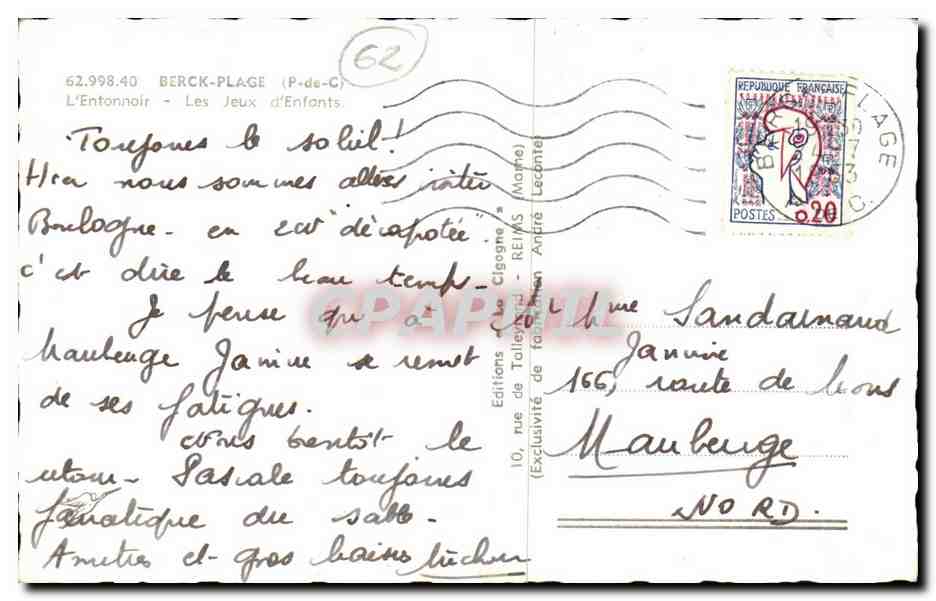 62
62.998.40 BERCK-PLAGE (P-de-C)
L'Entonnoir - Les Jeux d'Enfants
Toujours le soleil!
Hier nous sommes allées visiter
Boulogne - en "décapotée"
c'est dire le beau temps -
Je pense qu'à
Maubeuge Janine se remet
de ses fatigues.
bientôt le
retour - Pascale toujours
fanatique du sable -
Amitiés et gros baisers
Editions "La Cigogne"
10, rue de Talleyrand - REIMS (Marne)
(Exclusivité de fabrication André Leconte)
REPUBLIQUE FRANÇAISE
POSTES 0,20
PLAGE
CPAPHIL
Mme Sandarnaud
Janine
166, route de Mons
Maubeuge
NORD.